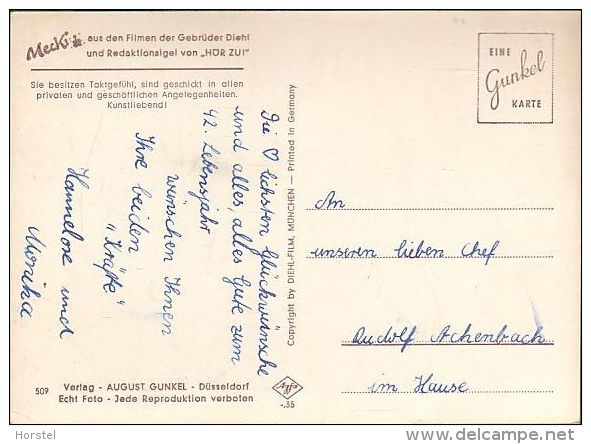 Mecki
aus den Filmen der Gebrüder Diehl
und Redaktionsigel von „HÖR ZU!"
Sie besitzen Taktgefühl, sind geschickt in allen
privaten und geschäftlichen Angelegenheiten.
Kunstliebend!
Die ♡ lichsten Glückwünsche
und alles, alles Gute zum
42. Lebensjahr
wünschen Ihnen
Ihre beiden
„Kräfte"
Hannelore und
Monika
509
Verlag - AUGUST GUNKEL - Düsseldorf
Echt Foto - Jede Reproduktion verboten
Copyright by DIEHL-FILM, MÜNCHEN — Printed in Germany
Agfa
-.35
EINE
Gunkel
KARTE
An
unseren lieben Chef
Rudolf Achenbach
im Hause
Horstel
delcampe.net